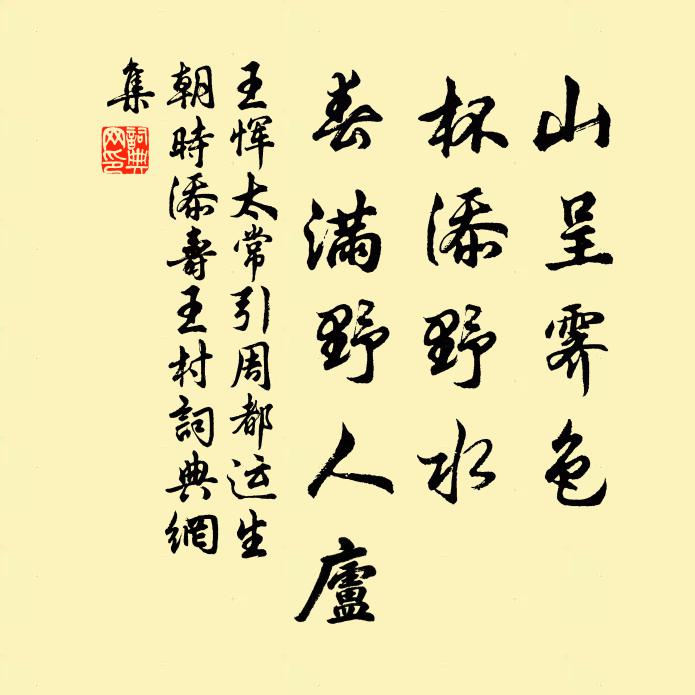 山呈霽色
杯添野水
春滿野人廬
王惲太常引周都运生
朝時添壽王村詞典網
集
詞典
网印